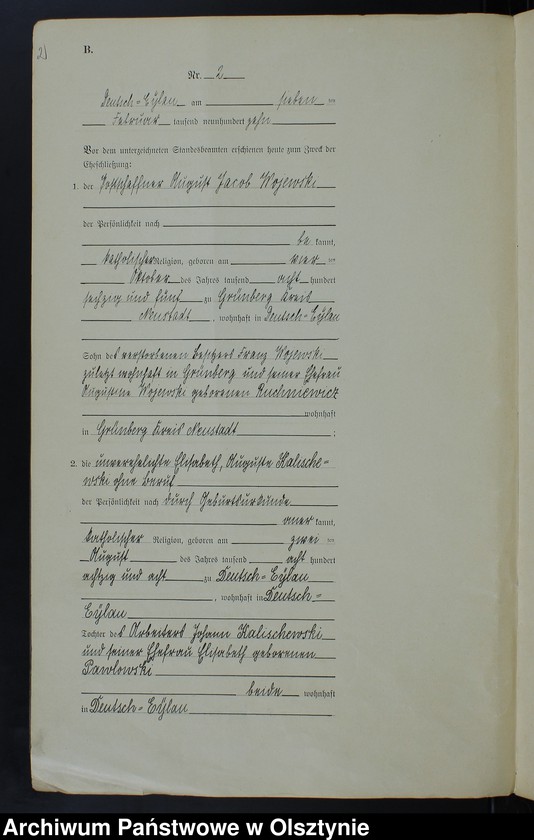 2)
B.
Nr. 2
Deutsch-Eylau am sieben ten
Februar tausend neunhundert zehn
Vor dem unterzeichneten Standesbeamten erschienen heute zum Zweck der
Eheschließung:
1. der Postschaffner August Jacob Wojewski
der Persönlichkeit nach
be kannt,
katholischer Religion, geboren am vier ten
Oktober des Jahres tausend acht hundert
sechzig und fünf zu Grünberg Kreis
Neustadt, wohnhaft in Deutsch-Eylau
Sohn des verstorbenen Besitzers Franz Wojewski
zuletzt wohnhaft in Grünberg und seiner Ehefrau
Augustine Wojewski geborenen Ruchniewicz
wohnhaft
in Grünberg Kreis Neustadt;
2. die unverehelichte Elisabeth, Auguste Kalische-
wski ohne Beruf
der Persönlichkeit nach durch Geburtsurkunde
aner kannt,
katholischer Religion, geboren am zwei ten
August des Jahres tausend acht hundert
achtzig und acht zu Deutsch-Eylau
, wohnhaft in Deutsch-
Eylau
Tochter des Arbeiters Johann Kalischewski
und seiner Ehefrau Elisabeth geborenen
Pawlowski
beide wohnhaft
in Deutsch-Eylau
Archiwum Państwowe w Olsztynie